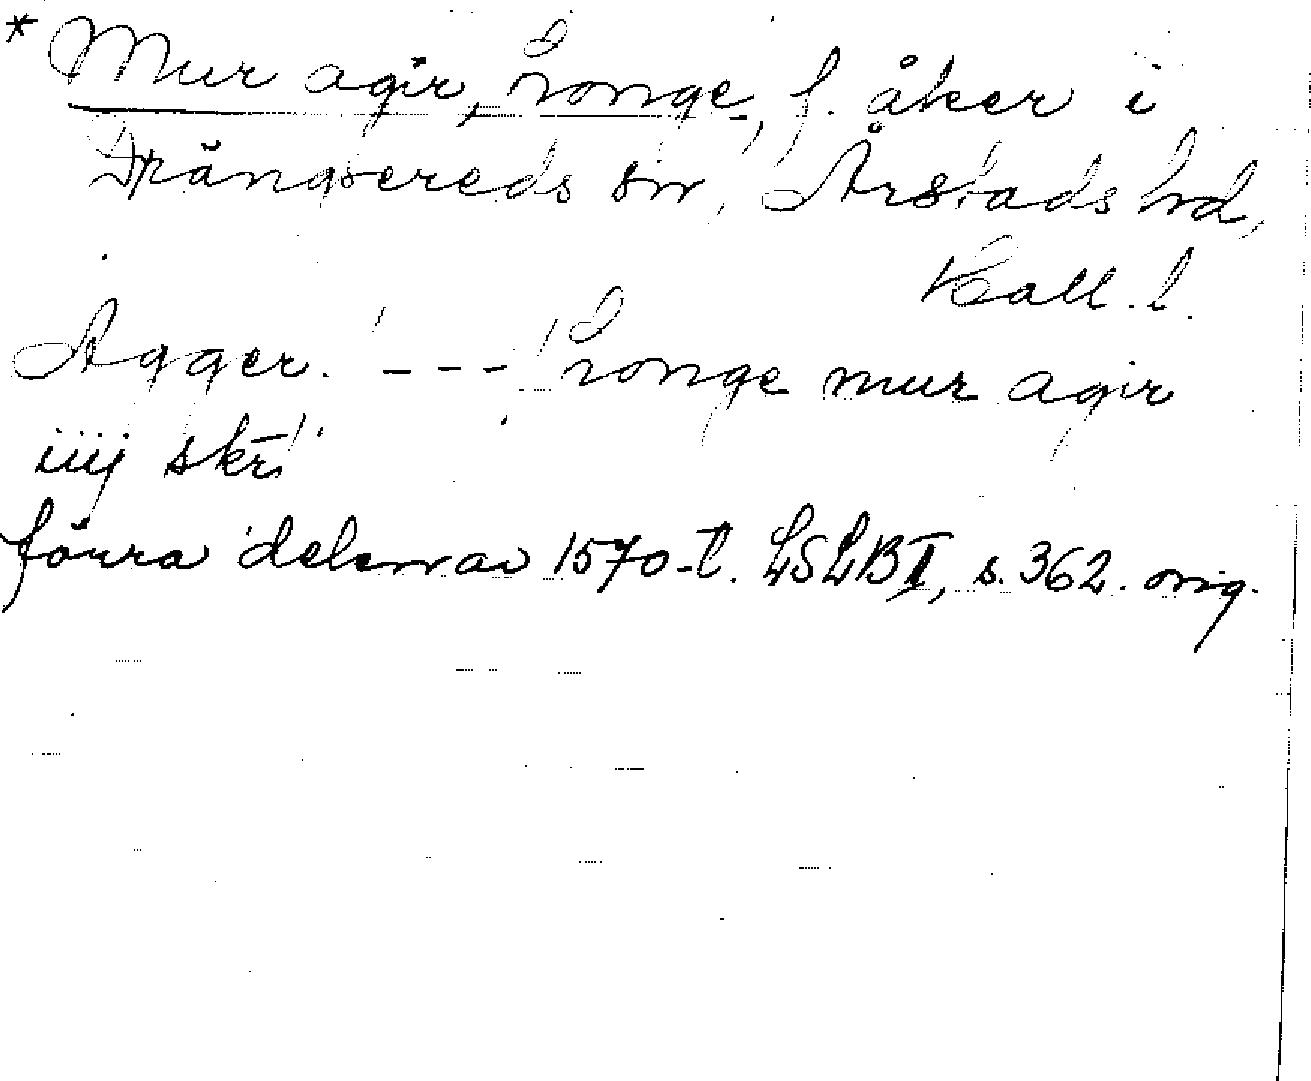 * Mur agir, Tronge, f. åker i
Drängsereds sn, Årstads hd,
Hall. l.
Agger. --- Tronge mur agir
iiij skr̄
förra delen av 1570-t. LSLB II, s. 362. orig.